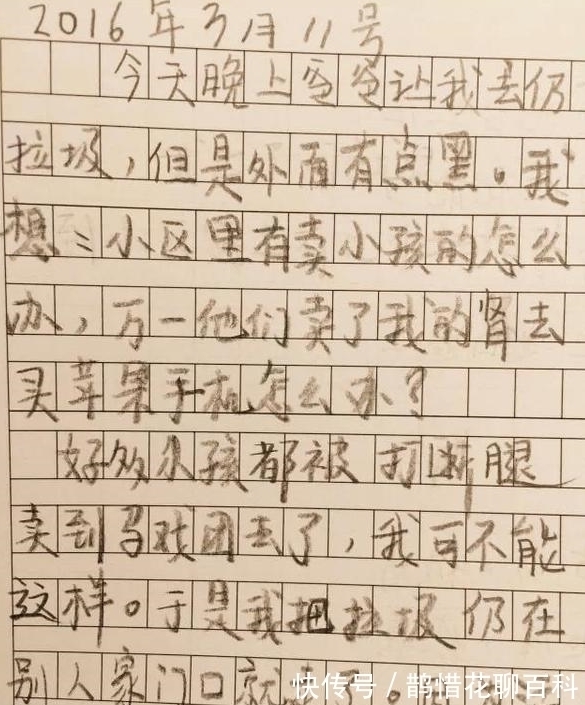 2016年3月11号
今天晚上爸爸让我去仍
拉圾，但是外面有点黑。我
想：小区里有卖小孩的怎么
办，万一他们卖了我的肾去
买苹果手机怎么办？
好多小孩都被打断腿
卖到马戏团去了，我可不能
这样。于是我把拉圾仍在
别人家门口就
快传号/鹊惜花聊百科